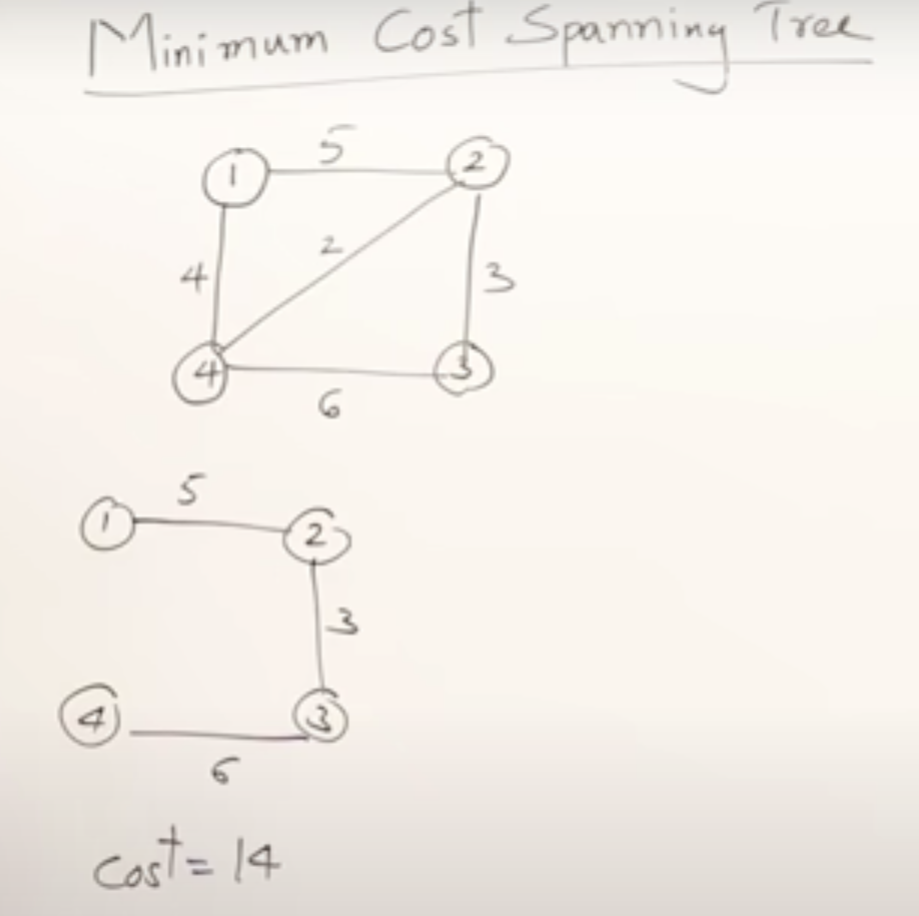 Minimum Cost Spanning Tree
5
1 2
2
4 3
4 3
6
5
1 2
3
4 3
6
Cost = 14